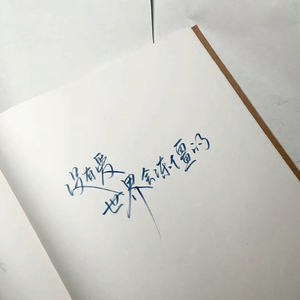 没有爱
世界会冻僵的